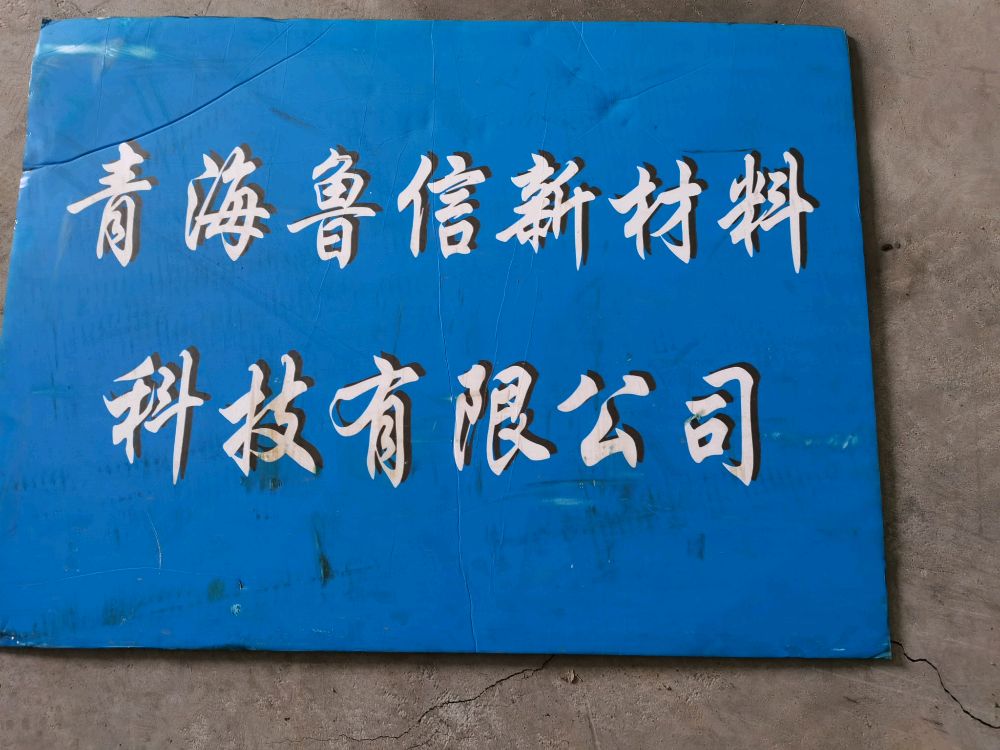 青海鲁信新材料
科技有限公司